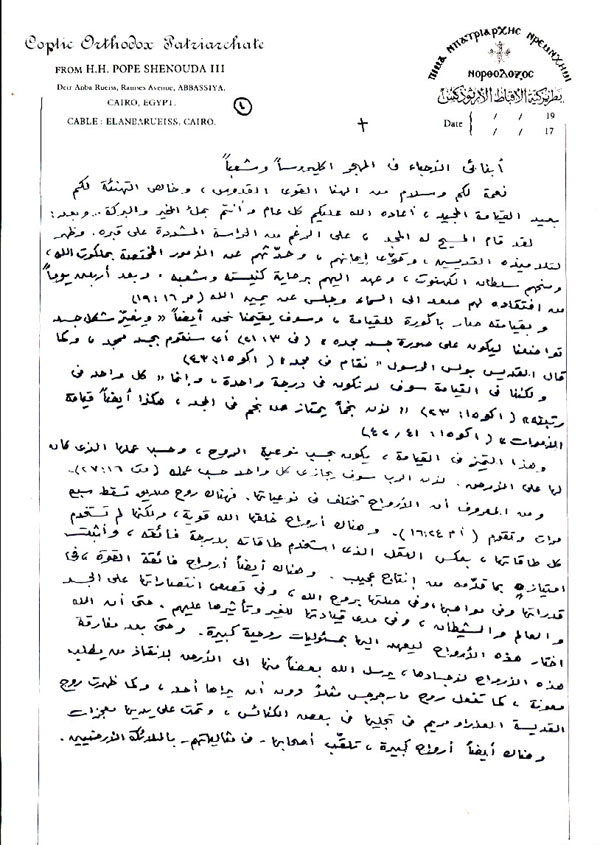 Coptic Orthodox Patriarchate
FROM H.H. POPE SHENOUDA III
Deir Anba Rueiss, Ramses Avenue, ABBASSIYA,
CAIRO, EGYPT.
CABLE : ELANBARUEISS, CAIRO.
بطريركية الأقباط الأرثوذكس
Date / / 19
/ / 17
أبنائى الأحباء فى المهجر اكليروساً وشعباً
نعمة لكم وسلام من إلهنا القوى القدوس، وخالص التهنئة لكم
بعيد القيامة المجيد، أعاده الله عليكم كل عام وأنتم بملء الخير والبركة .. وبعد :
لقد قام المسيح له المجد، على الرغم من الحراسة المشددة على قبره. وظهر
لتلاميذه القديسين، وقوّى إيمانهم، وحدّثهم عن الأمور المختصة بملكوت الله،
ومنحهم سلطان الكهنوت، وعهد اليهم برعاية كنيسته وشعبه. وبعد أربعين يوماً
من افتقاده لهم صعد الى السماء وجلس عن يمين الله (مر ١٦ : ١٩)
وبقيامته صار باكورة للقيامة، وسوف يقيمنا نحن أيضاً "ويغيّر شكل جسد
تواضعنا ليكون على صورة جسد مجده" (فى ٣ : ٢١) أى سنقوم بجسد ممجد، وكما
قال القديس بولس الرسول "نقام فى مجد" (١كو ١٥ : ٤٣)
ولكننا فى القيامة سوف لا نكون فى درجة واحدة، وإنما "كل واحد فى
رتبته" (١كو ١٥ : ٢٣) "لأن نجماً يمتاز عن نجم فى المجد، هكذا أيضاً قيامة
الأموات" (١كو ١٥ : ٤١، ٤٢)
وهذا التميز فى القيامة، يكون بحسب نوعية الروح، وحسب عملها الذى كان
لها على الأرض. لأن الرب سوف يجازى كل واحد حسب عمله (مت ١٦ : ٢٧).
ومن المعروف أن الأرواح تختلف فى نوعياتها. فهناك روح صديق تسقط سبع
مرات وتقوم (أم ٢٤ : ١٦). وهناك أرواح خلقها الله قوية، ولكنها لم تستخدم
كل طاقاتها، بعكس العقل الذى استخدم طاقاته بدرجة فائقة، وأثبت
امتيازه بما قدّمه من إنتاج عجيب. وهناك أيضاً أرواح فائقة القوة، فى
قدراتها وفى مواهبها وفى صلتها بروح الله، وفى قصص انتصاراتها على الجسد
والعالم والشيطان، وفى مدى قيادتها للغير وتأثيرها عليهم. حتى أن الله
اختار هذه الأرواح ليعهد اليها بمسئوليات روحية كبيرة. وحتى بعد مفارقة
هذه الأرواح لأجسادها، يرسل الله بعضاً منها الى الأرض لإنقاذ من يطلب
معونة، كما تفعل روح مارجرجس مثلاً دون أن يراها أحد، وكما ظهرت روح
القديسة العذراء مريم فى تجليها فى بعض الكنائس، وتمت على يديها معجزات
وهناك أيضاً أرواح كبيرة، تلقّب أصحابها - فى مثالياتهم - بالملائكة الأرضيين.